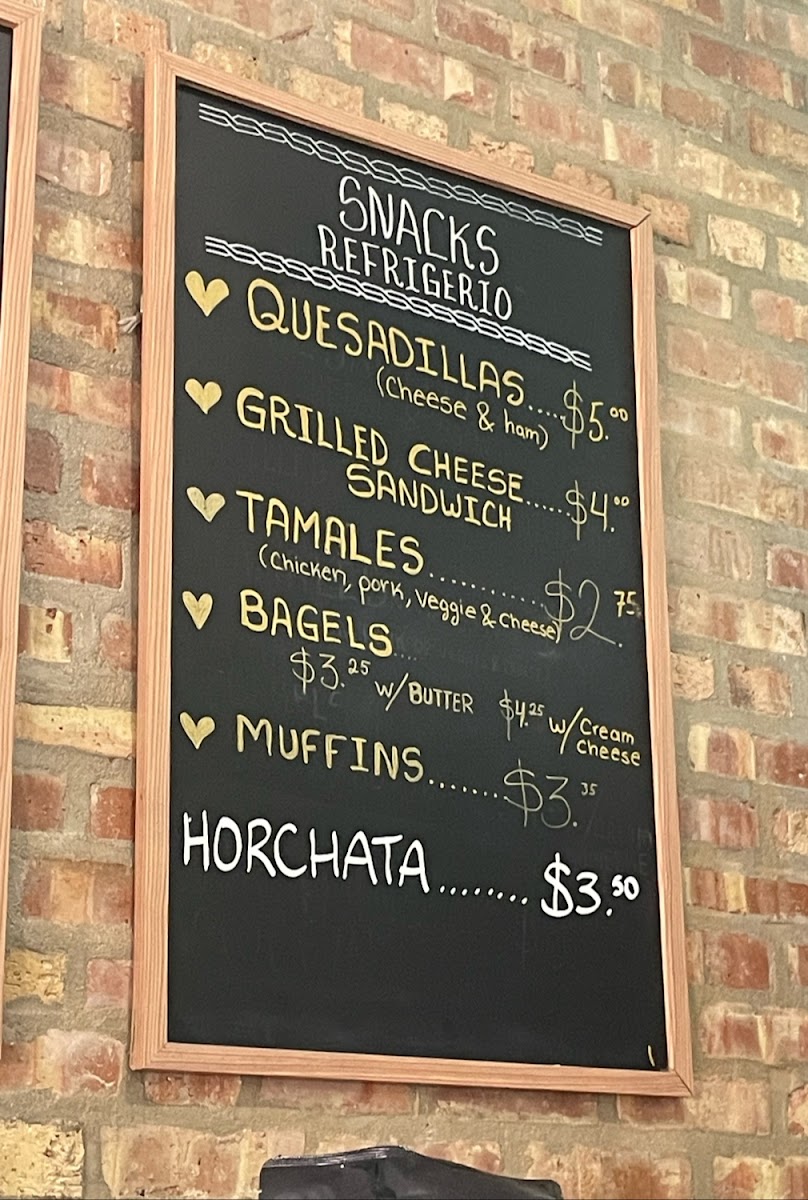 SNACKS
REFRIGERIO
QUESADILLAS.....$5.00
(Cheese & ham)
GRILLED CHEESE
SANDWICH......$4.00
TAMALES............$2.75
(Chicken, pork, Veggie & Cheese)
BAGELS....
$3.25 w/BUTTER $4.25 w/Cream
cheese
MUFFINS.......$3.35
HORCHATA........$3.50